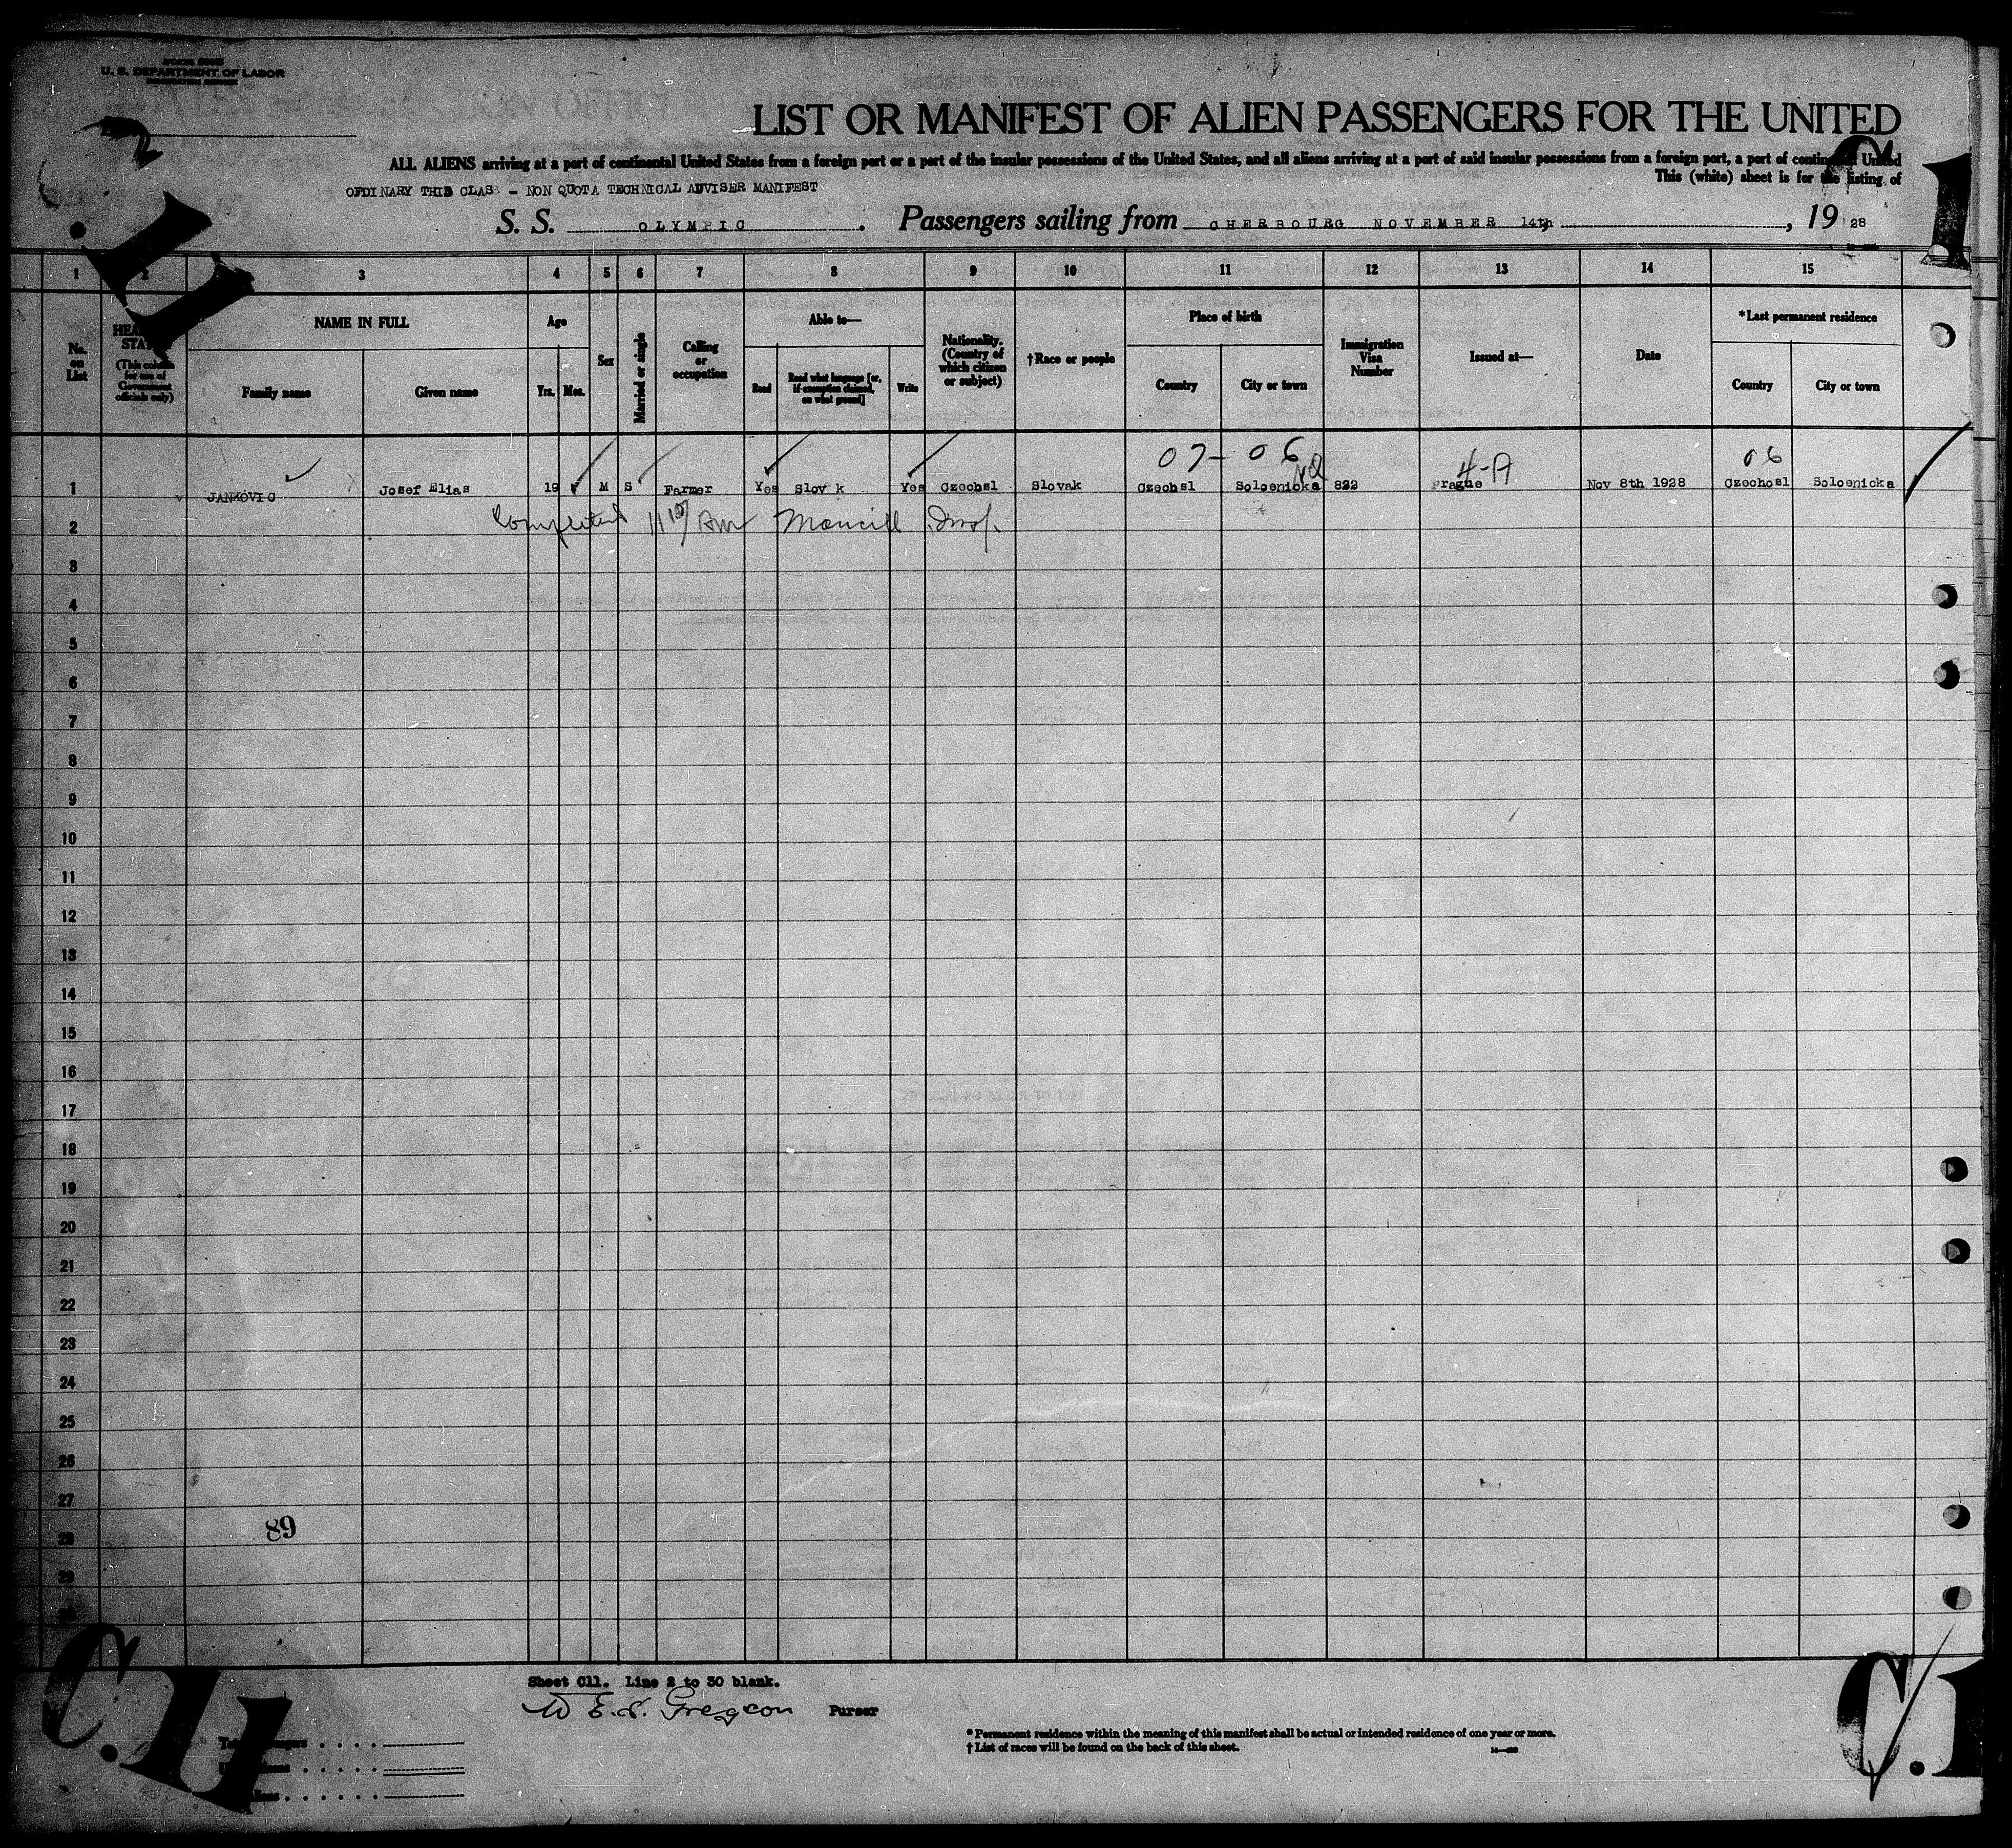 U. S. DEPARTMENT OF LABOR
LIST OR MANIFEST OF ALIEN PASSENGERS FOR THE UNITED
ALL ALIENS arriving at a port of continental United States from a foreign port or a port of the insular possessions of the United States, and all aliens arriving at a port of said insular possessions from a foreign port, a port of continental United
This (white) sheet is for the listing of
ORDINARY THID CLASS - NON QUOTA TECHNICAL ADVISER MANIFEST
S. S. OLYMPIC. Passengers sailing from CHERBOURG NOVEMBER 14th, 1928
1 2 3 4 5 6 7 8 9 10 11 12 13 14 15
No. on List
(This column for use of Government officials only)
NAME IN FULL
Family name
Given name
Age
Yrs. Mos.
Sex
Married or single
Calling or occupation
Able to—
Read
Read what language [or, if exemption claimed, on what ground]
Write
Nationality. (Country of which citizen or subject)
†Race or people
Place of birth
Country
City or town
Immigration Visa Number
Issued at—
Date
*Last permanent residence
Country
City or town
07- 06 4-A 06
1 JANKOVIC Josef Elias 19 M S Farmer Yes Slov k Yes Czechsl Slovak Czechsl Solcenicka 822 Prague Nov 8th 1928 Czechosl Solcenicka
2 Completed 11 10/ Am Insp.
3
4
5
6
7
8
9
10
11
12
13
14
15
16
17
18
19
20
21
22
23
24
25
26
27
28
29
89
Sheet C11. Line 2 to 30 blank.
Purser
* Permanent residence within the meaning of this manifest shall be actual or intended residence of one year or more.
† List of races will be found on the back of this sheet.
C.11
C.1